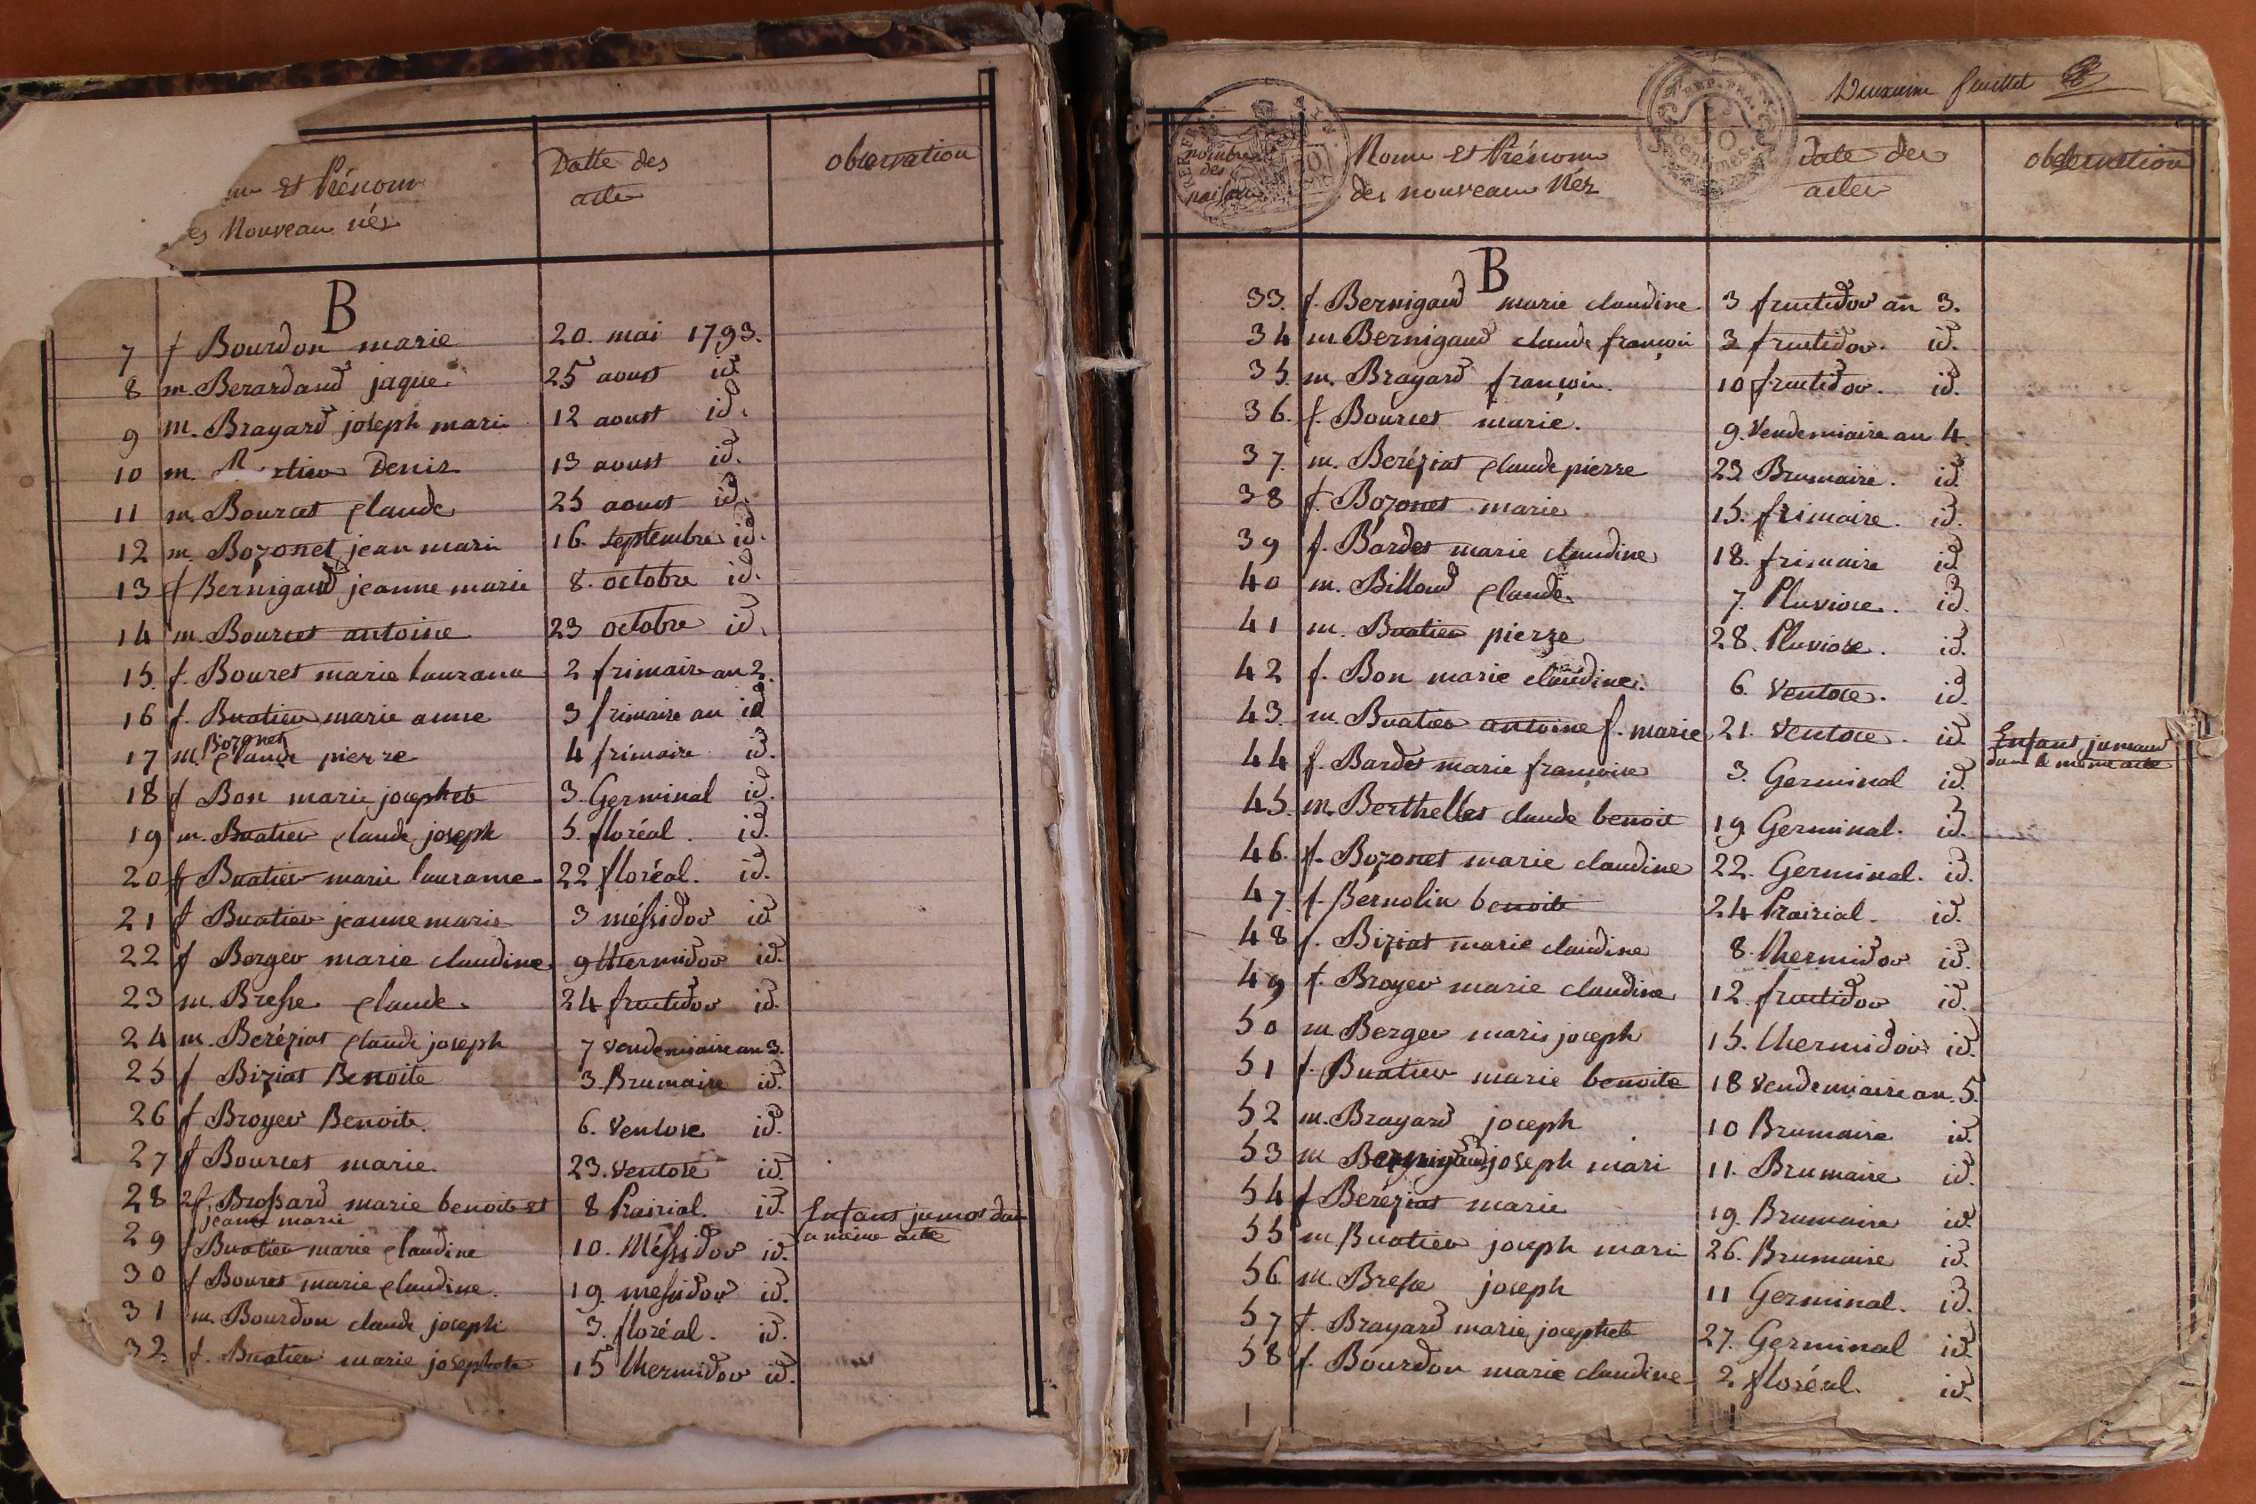 et Prénom
Nouveau nés
Datte des
acte
observation
B
7 f Bourdon marie 20. mai 1793.
8 m. Berardaud jaque 25 aoust id.
9 m. Brayard joseph mari 12 aoust id.
10 m. Denis 13 aoust id.
11 m. Bourcet claude 25 aoust id.
12 m. Bozonet jean mari 16. septembre id.
13 f Bernigaud jeanne marie 8. octobre id.
14 m. Bourcet antoine 23 octobre id.
15. f. Bouret marie 2 frimaire an 2.
16 f. Buatier marie anne 3 frimaire an id
Bozonet
17 m. claude pierre 4 frimaire id.
18 f Bon marie josephete 3. Germinal id.
19 m. Buatier claude joseph 5. floréal. id.
20 f Buatier marie 22 floréal. id.
21 f Buatier jeanne marie 3 méssidor id
22 f Berger marie claudine 9 thermidor id.
23 m. Bresse claude. 24 fructidor id.
24 m. Beréziat claude joseph 7 vendemiaire an 3.
25 f Biziat Benoite 3. Brumaire id.
26 f Broyer Benoite. 6. ventose id.
27 f Bourcet marie. 23. ventose id.
28 2f. Brossard marie benoite et 8 Prairial. id. Enfans jumos dan
jeanne marie a même acte
29 f Buatier marie claudine 10. Méssidor id.
30 f Bouret marie claudine. 19. messidor id.
31 m. Bourdon claude joseph 3. floréal. id.
32. f. Buatier marie josephete 15 thermidor id.
Deuxieme feuillet
nombre
des
Nom et Prénom
des nouveau Nés
Date des
actes
observation
B
33. f. Bernigaud marie claudine 3 fructidor an 3.
34 m. Bernigaud claude françois 3 fructidor. id.
35. m. Brayard françois. 10 fructidor. id.
36. f. Bourcet marie. 9. Vendemiaire an 4.
37. m. Beréziat claude pierre 23 Brumaire. id.
38 f. Bozonet marie 15. frimaire. id.
39 f. Bardet marie claudine 18. frimaire id.
40 m. Billoud claude. 7. Pluviose. id.
41 m. Buatier pierre 28. Pluviose. id.
42 f. Bon marie claudine. 6. Ventose. id.
43. m. Buatier antoine f. marie 21. Ventose. id. Enfans jumeaux
dans le meme acte
44 f. Bardet marie françoise 3. Germinal id.
45. m. Berthellet claude benoit 19 Germinal. id.
46. f. Bozonet marie claudine 22. Germinal. id.
47. f. Bernolin benoite 24 Prairial. id.
48 f. Biziat marie claudine 8. thermidor id.
49 f. Broyer marie claudine 12. fructidor id.
50 m Berger marie joseph 15. thermidor id.
51 f. Buatier marie benoite 18 vendemiaire an. 5.
52 m. Brayard joseph 10 Brumaire id.
53 m Bernigaud joseph mari 11. Brumaire id.
54 f Beréziat marie 19. Brumaire id.
55 m Buatier joseph mari 26. Brumaire id.
56. m. Bresse joseph 11 Germinal. id.
57 f. Brayard marie josephete 27. Germinal id.
58 f. Bourdon marie claudine 2. floréal. id.